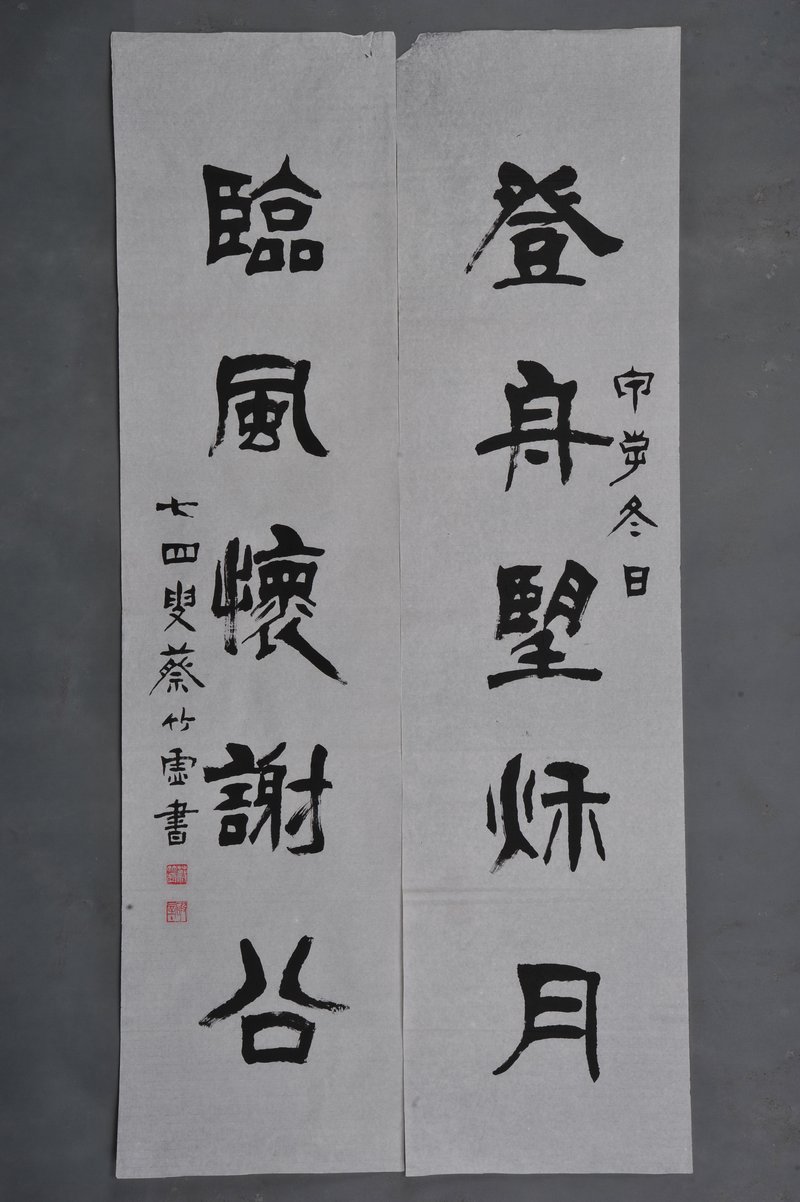 登舟望秌月
冬日
臨風懷謝公
七四叟蔡竹虛書